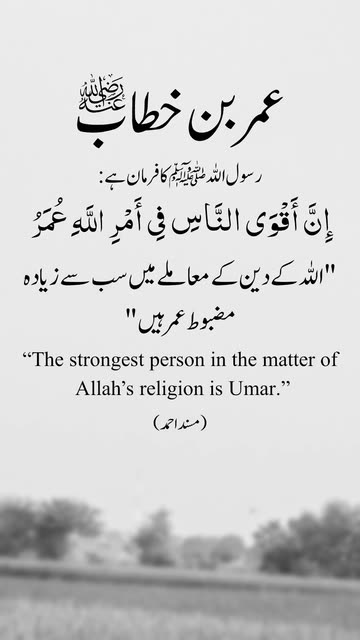 عمر بن خطاب رضی اللہ عنہ
رسول اللہ ﷺ کا فرمان ہے:
إِنَّ أَقْوَى النَّاسِ فِي أَمْرِ اللَّهِ عُمَرُ
"اللہ کے دین کے معاملے میں سب سے زیادہ
مضبوط عمر ہیں"
“The strongest person in the matter of
Allah’s religion is Umar.”
(مسند احمد)